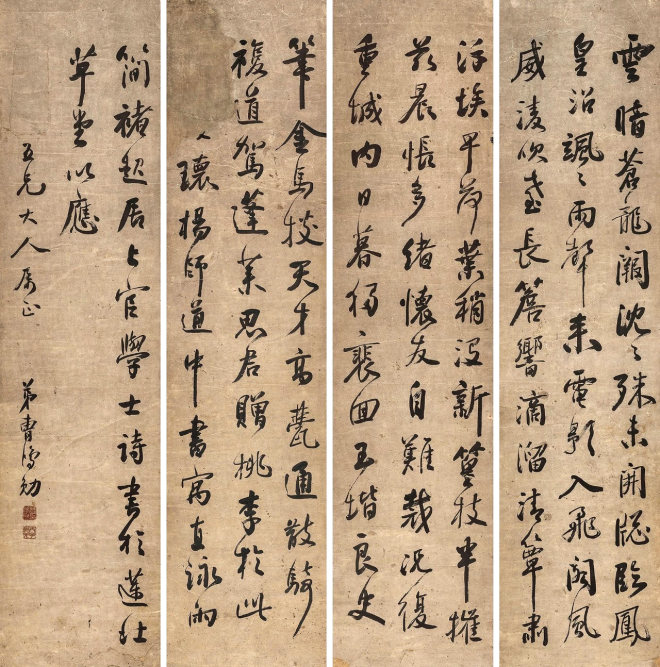 雲暗蒼龍闕沈〻殊未開牕臨鳳
皇沼颯〻雨聲來電影入飛閣風
威淩吹臺長簷響滴溜清簟肅
浮埃早荷葉稍沒新篁枝半摧
茲晨悵多緒懷友自難裁況復
重城內日暮獨裴回玉堦良史
筆金馬掞天才高甍通散騎
複道駕蓬萊思君贈桃李於此
瓌楊師道中書寓直詠雨
簡褚起居上官學士詩書於蓮社
草堂以應
五兄大人屬正
弟曹鴻勛